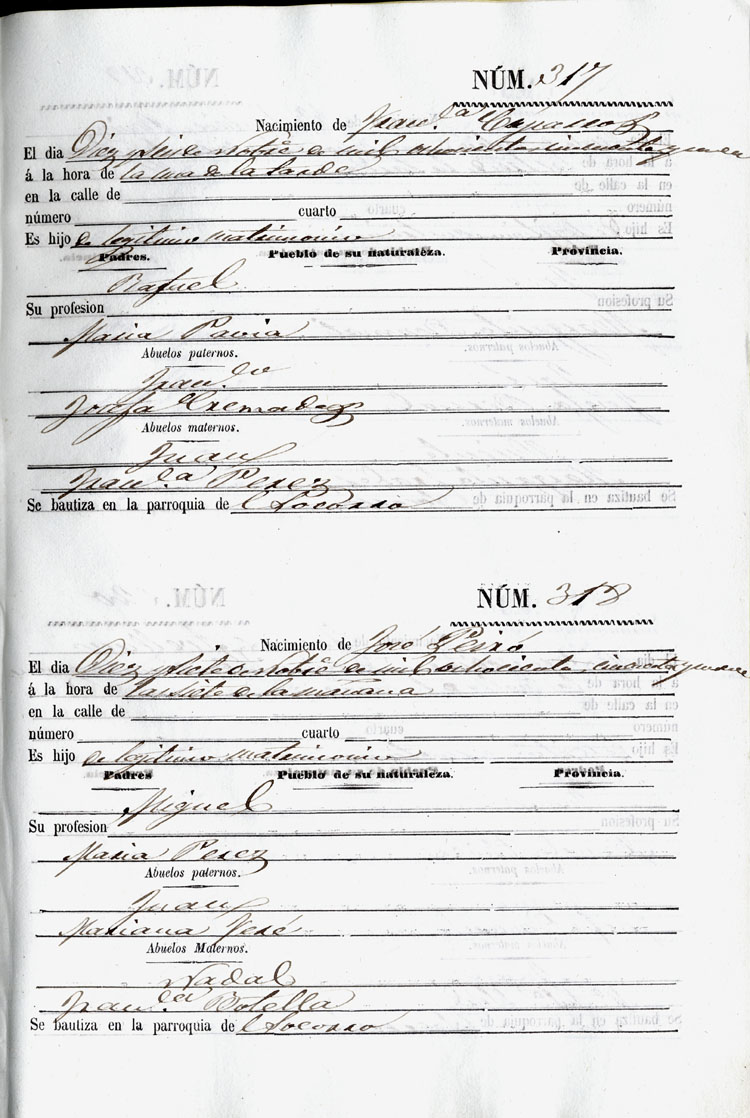 NÚM. 317
Nacimiento de Fran.ca
El dia Diez y seis de Nobre de mil ochocientos cincuenta y nueve
á la hora de la una de la tarde
en la calle de
número cuarto
Es hijo de legitimo matrimonio
Padres. Pueblo de su naturaleza. Provincia.
Rafael
Su profesion
Maria Pavia
Abuelos paternos.
Fran.co
Josefa Cremades
Abuelos maternos.
Juan
Fran.ca Perez
Se bautiza en la parroquia de l Socorro
NÚM. 318
Nacimiento de José Peiró
El dia Diez y siete de Nobre de mil ochocientos cincuenta y nueve
á la hora de las siete de la mañana
en la calle de
número cuarto
Es hijo de legitimo matrimonio
Padres Pueblo de su naturaleza. Provincia.
Miguel
Su profesion
Maria Perez
Abuelos paternos.
Juan
Mariana
Abuelos Maternos.
Nadal
Fran.ca Botella
Se bautiza en la parroquia de l Socorro